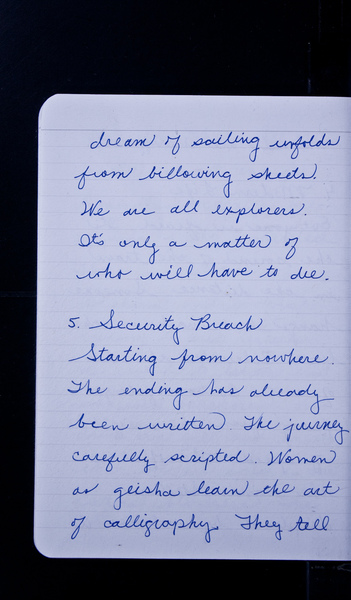 dream of sailing unfolds
from billowing sheets.
We are all explorers.
It's only a matter of
who will have to die.
5. Security Breach
Starting from nowhere.
The ending has already
been written. The journey
carefully scripted. Women
as geisha learn the art
of calligraphy. They tell